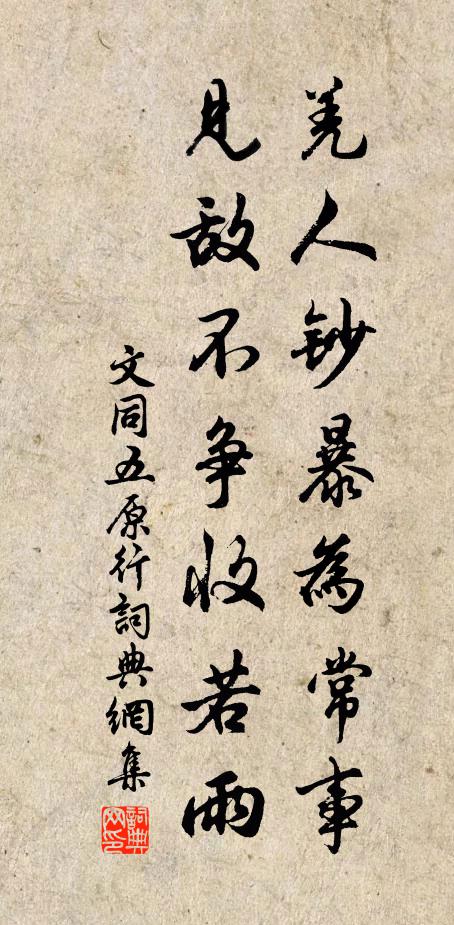 羌人鈔暴為常事
見敵不争收若雨
文同五原行詞典網集
詞典网印